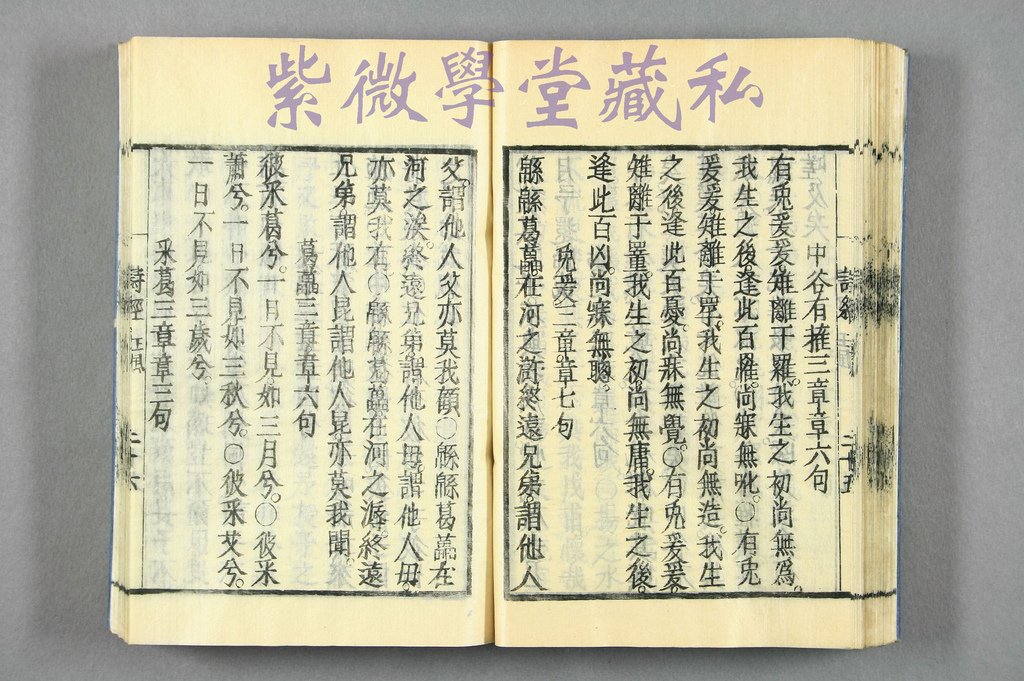 紫微學堂藏私
中谷有蓷三章章六句
有兎爰爰。雉離于羅。我生之初。尚無爲。
我生之後。逢此百罹。尚寐無吪。〇有兎
爰爰。雉離于罦。我生之初。尚無造。我生
之後。逢此百憂。尚寐無覺。〇有兎爰爰。
雉離于罿。我生之初。尚無庸。我生之後。
逢此百凶。尚寐無聰。
兎爰三章章七句
緜緜葛藟。在河之滸。終遠兄弟。謂他人
父。謂他人父。亦莫我顧。〇緜緜葛藟。在
河之涘。終遠兄弟。謂他人母。謂他人母。
亦莫我有。〇緜緜葛藟。在河之漘。終遠
兄弟。謂他人昆。謂他人昆。亦莫我聞。
葛藟三章章六句
彼采葛兮。一日不見。如三月兮。〇彼采
蕭兮。一日不見。如三秋兮。〇彼采艾兮。
一日不見。如三歲兮。
采葛三章章三句
詩經 王風 二十六